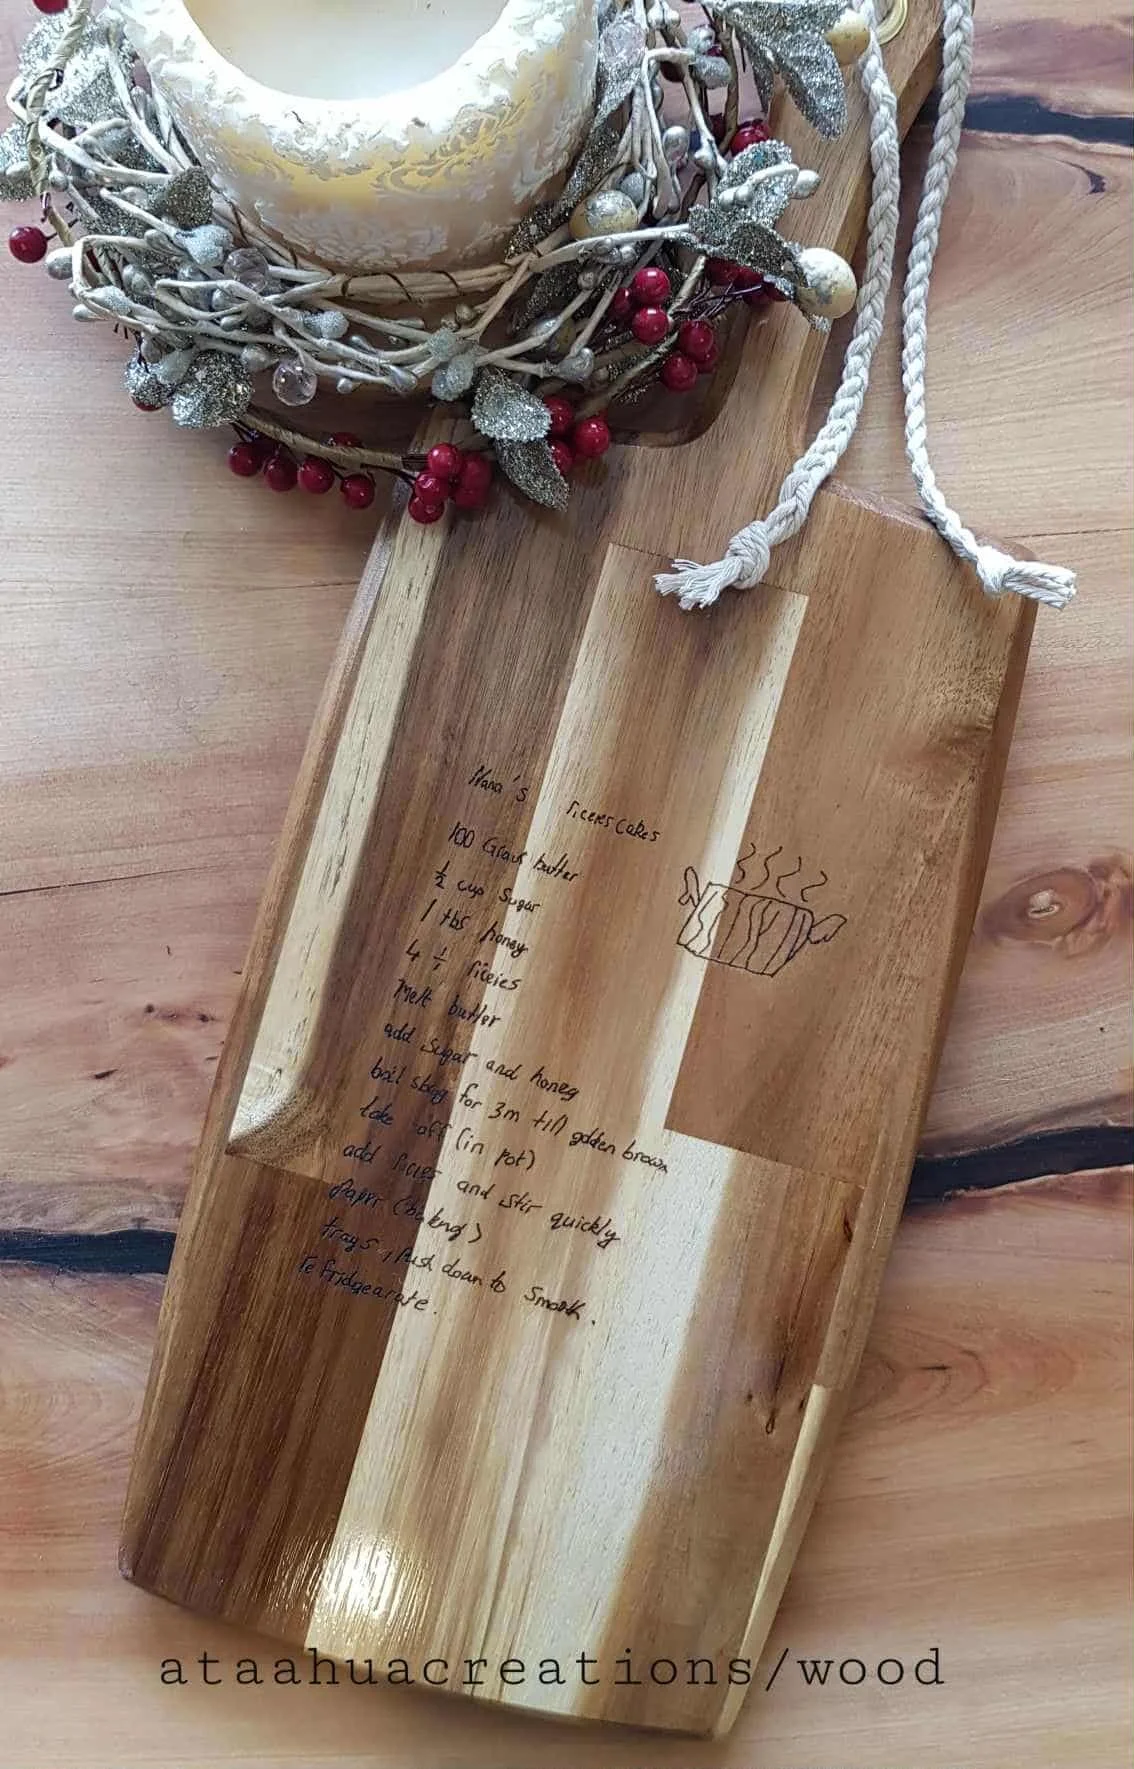 Nana's riceies cakes
100 Grams butter
½ cup sugar
1 tbs honey
4 ½ riceies
Melt butter
add sugar and honey
boil slow for 3m till golden brown
take off (in pot)
add ricies and stir quickly
Paper (baking)
trays, Push down to smooth.
refridgearate.
ataahuacreations/wood